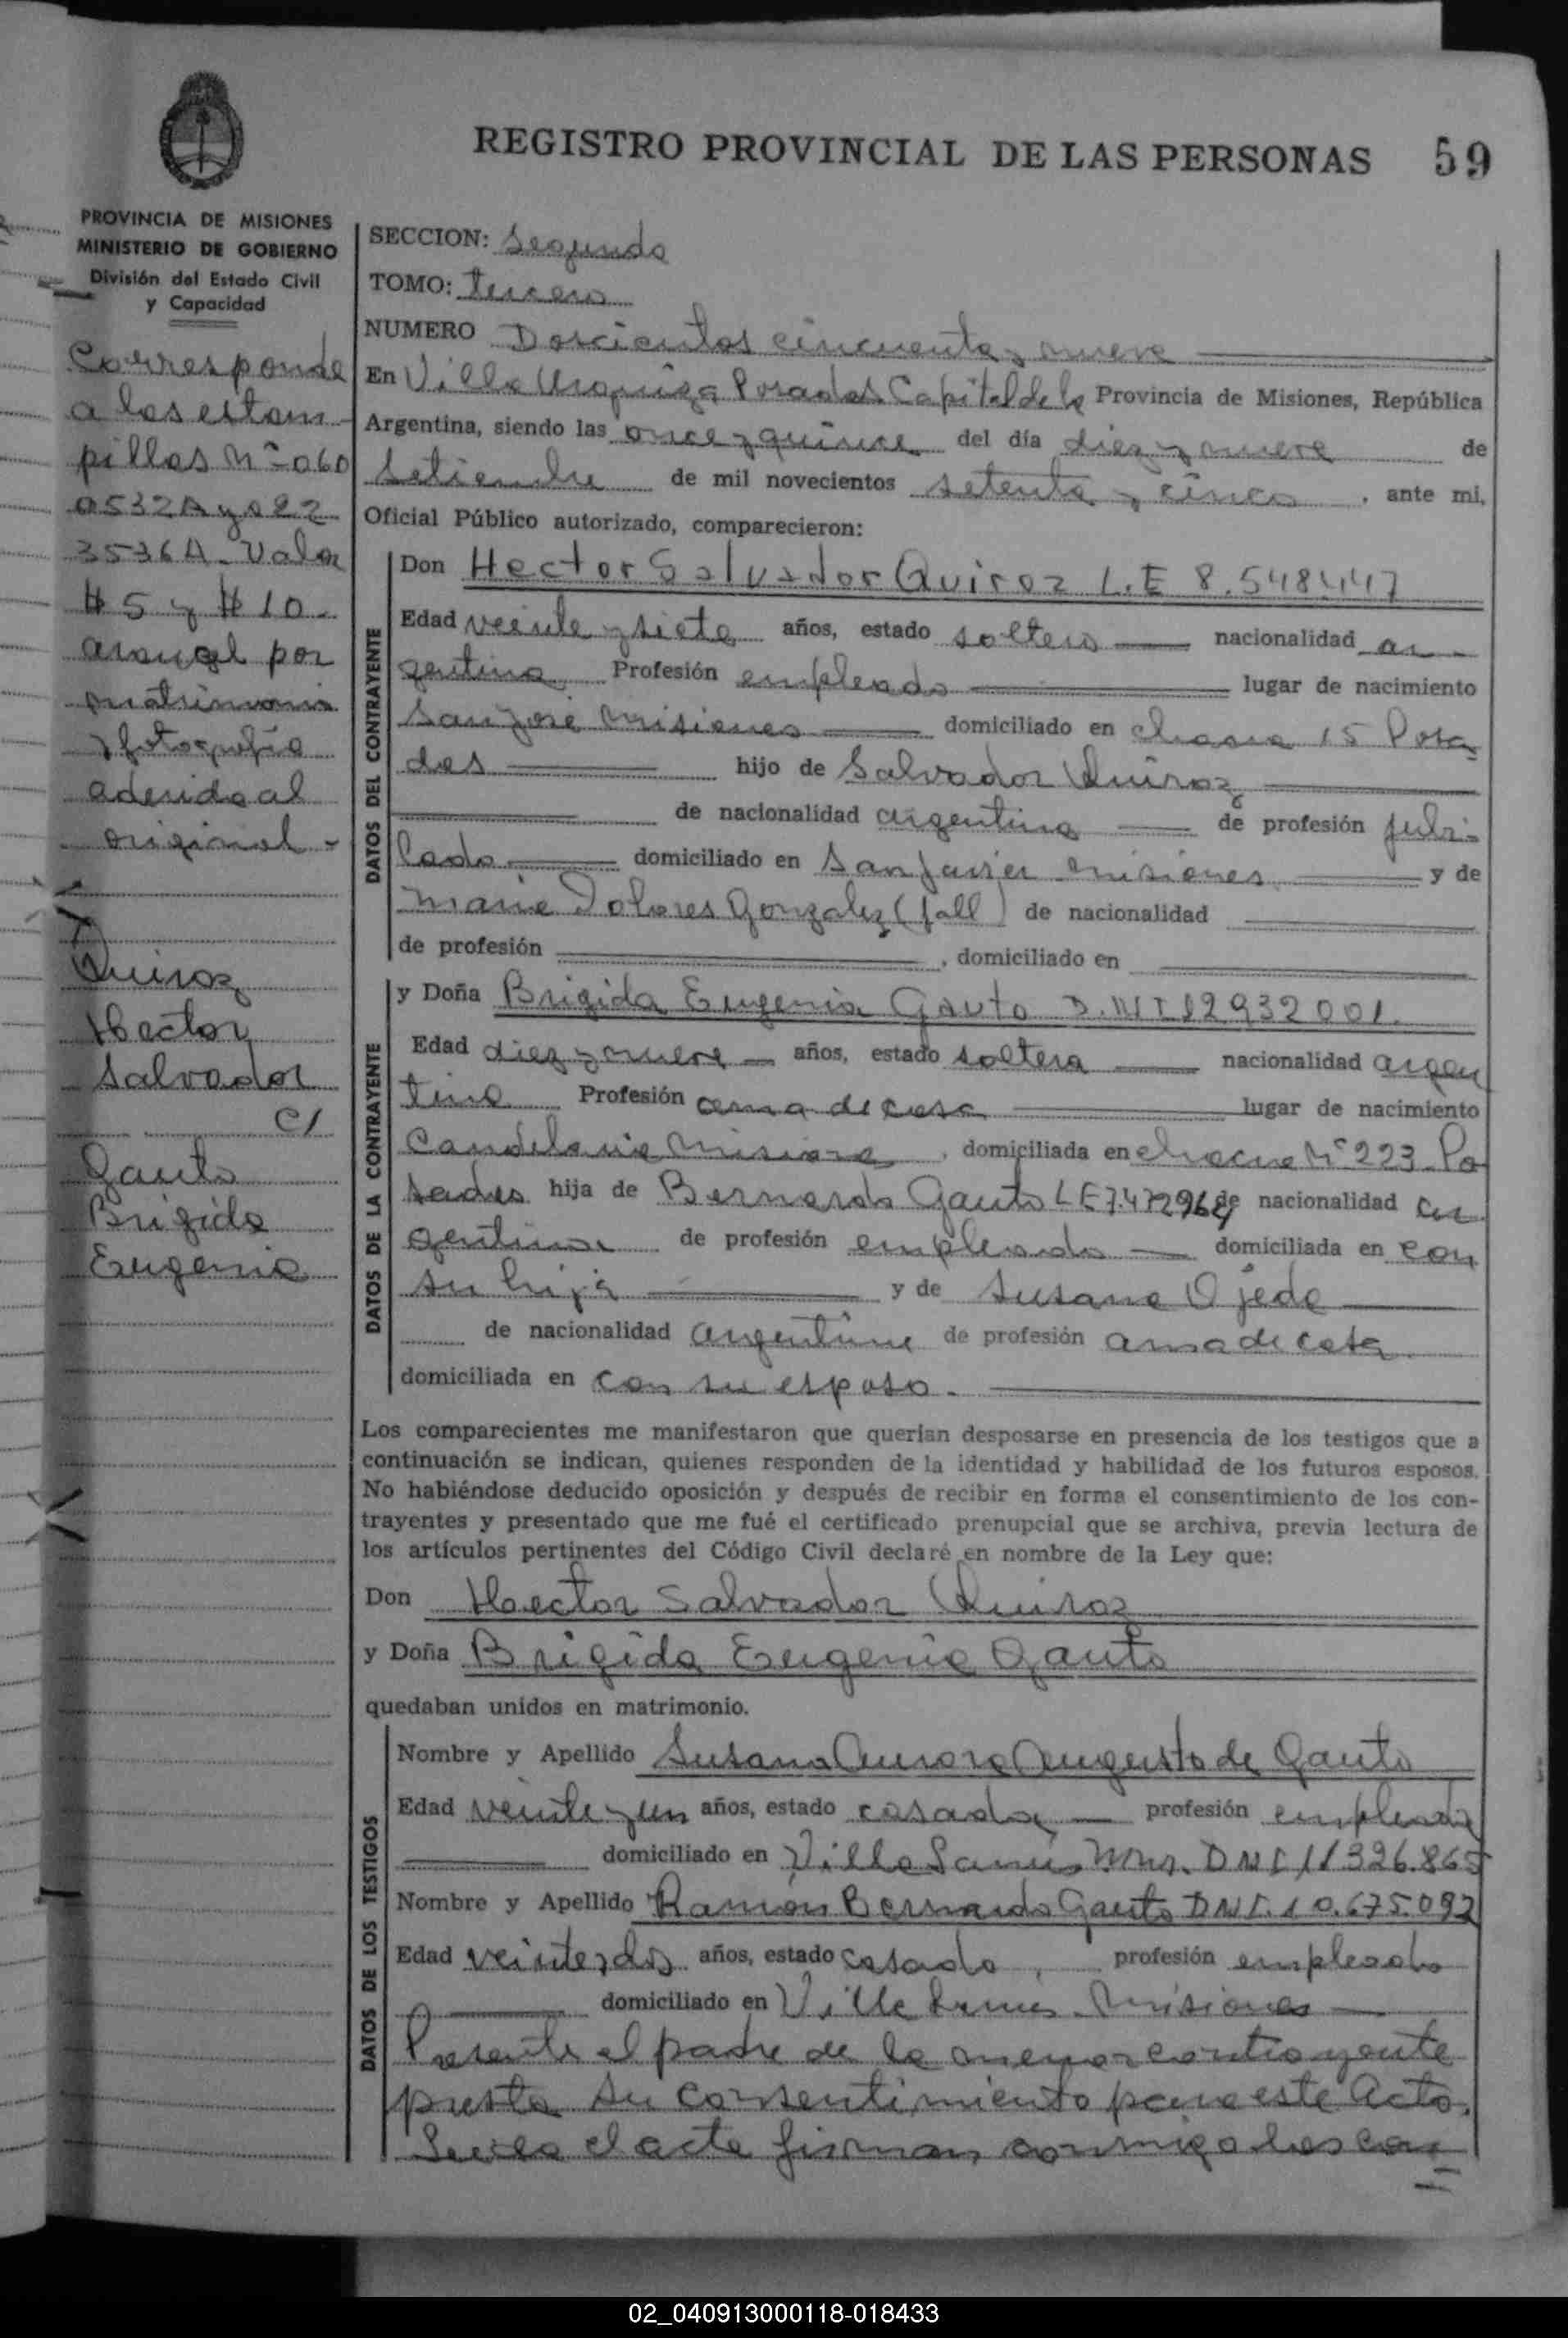 REGISTRO PROVINCIAL DE LAS PERSONAS 59
PROVINCIA DE MISIONES
MINISTERIO DE GOBIERNO
División del Estado Civil
y Capacidad
Corresponde
a las estam-
pillas Nº 060
0532A y 022
3536A - Valor
$ 5 y $ 10.
arancel por
matrimonio
y fotografia
aderida al
original -
Quiroz
Hector
Salvador
c/
Gauto
Brigida
Eugenia
SECCION: Segunda
TOMO: tercero
NUMERO Doscientos cincuenta y nueve
En Villa Urquiza Posadas Capital de la Provincia de Misiones, República
Argentina, siendo las once y quince del día diez y nueve de
Setiembre de mil novecientos setenta y cinco, ante mi,
Oficial Público autorizado, comparecieron:
DATOS DEL CONTRAYENTE
Don Hector Salvador Quiroz L.E 8.548.447
Edad veinte y siete años, estado soltero nacionalidad ar-
gentina Profesión empleado lugar de nacimiento
San José Misiones domiciliado en chacra 15 Posa
das hijo de Salvador Quiroz
de nacionalidad argentina de profesión jubi-
lado domiciliado en San Javier Misiones y de
Maria Dolores Gonzalez (fall) de nacionalidad
de profesión , domiciliado en
DATOS DE LA CONTRAYENTE
y Doña Brigida Eugenia Gauto D.N.I 12932001.
Edad diez y nueve años, estado soltera nacionalidad argen
tina Profesión ama de casa lugar de nacimiento
Candelaria Misiones, domiciliada en chacra Nº 223 Po
sadas hija de Bernardo Gauto LE 7.472964 de nacionalidad ar
gentina de profesión empleado domiciliada en con
su hija y de Susana Ojeda
de nacionalidad argentina de profesión ama de casa
domiciliada en con su esposo.
Los comparecientes me manifestaron que querían desposarse en presencia de los testigos que a
continuación se indican, quienes responden de la identidad y habilidad de los futuros esposos.
No habiéndose deducido oposición y después de recibir en forma el consentimiento de los con-
trayentes y presentado que me fué el certificado prenupcial que se archiva, previa lectura de
los artículos pertinentes del Código Civil declaré en nombre de la Ley que:
Don Hector Salvador Quiroz
y Doña Brigida Eugenia Gauto
quedaban unidos en matrimonio.
DATOS DE LOS TESTIGOS
Nombre y Apellido Susana Aurora Augusto de Gauto
Edad veinte y un años, estado casada profesión empleada
domiciliado en Villa Lanus Mnes. DNI 11326.865
Nombre y Apellido Ramón Bernardo Gauto DNI. 10.675.092
Edad veinte y dos años, estado casado, profesión empleado
domiciliado en Villa Lanus Misiones
Presente el padre de la menor contrayente
presta su consentimiento para este Acto.
Leida el acta firman conmigo los con
02_040913000118-018433